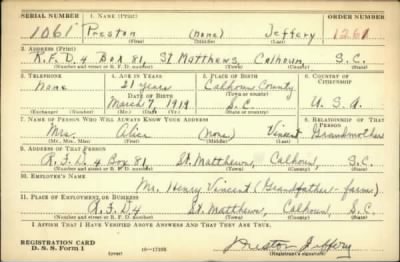 SERIAL NUMBER 1. NAME (PRINT) ORDER NUMBER
1061 Preston (none) Jeffery 1261
(First) (Middle) (Last)
2. ADDRESS (PRINT)
R.F.D. 4 Box 81, St Matthews Calhoun, S.C.
(Number and street or R. F. D. number) (Town) (County) (State)
3. TELEPHONE 4. AGE IN YEARS 5. PLACE OF BIRTH 6. COUNTRY OF CITIZENSHIP
None 21 years Calhoun County
DATE OF BIRTH (Town or county)
March 7, 1919 S.C. U.S.A.
(Exchange) (Number) (Mo.) (Day) (Yr.) (State or country)
7. NAME OF PERSON WHO WILL ALWAYS KNOW YOUR ADDRESS 8. RELATIONSHIP OF THAT PERSON
Mrs. Alice (None) Vincent Grandmother
(Mr., Mrs., Miss) (First) (Middle) (Last)
9. ADDRESS OF THAT PERSON
R.F.D. 4 Box 81, St. Matthews, Calhoun, S.C.
(Number and street or R. F. D. number) (Town) (County) (State)
10. EMPLOYER'S NAME
Mr. Henry Vincent (Grandfather - farm)
11. PLACE OF EMPLOYMENT OR BUSINESS
R.F.D. 4 St. Matthews, Calhoun, S.C
(Number and street or R. F. D. number) (Town) (County) (State)
I AFFIRM THAT I HAVE VERIFIED ABOVE ANSWERS AND THAT THEY ARE TRUE.
REGISTRATION CARD
D. S. S. Form 1 (over) 16—17105 Preston Jeffery
(Registrant's signature)